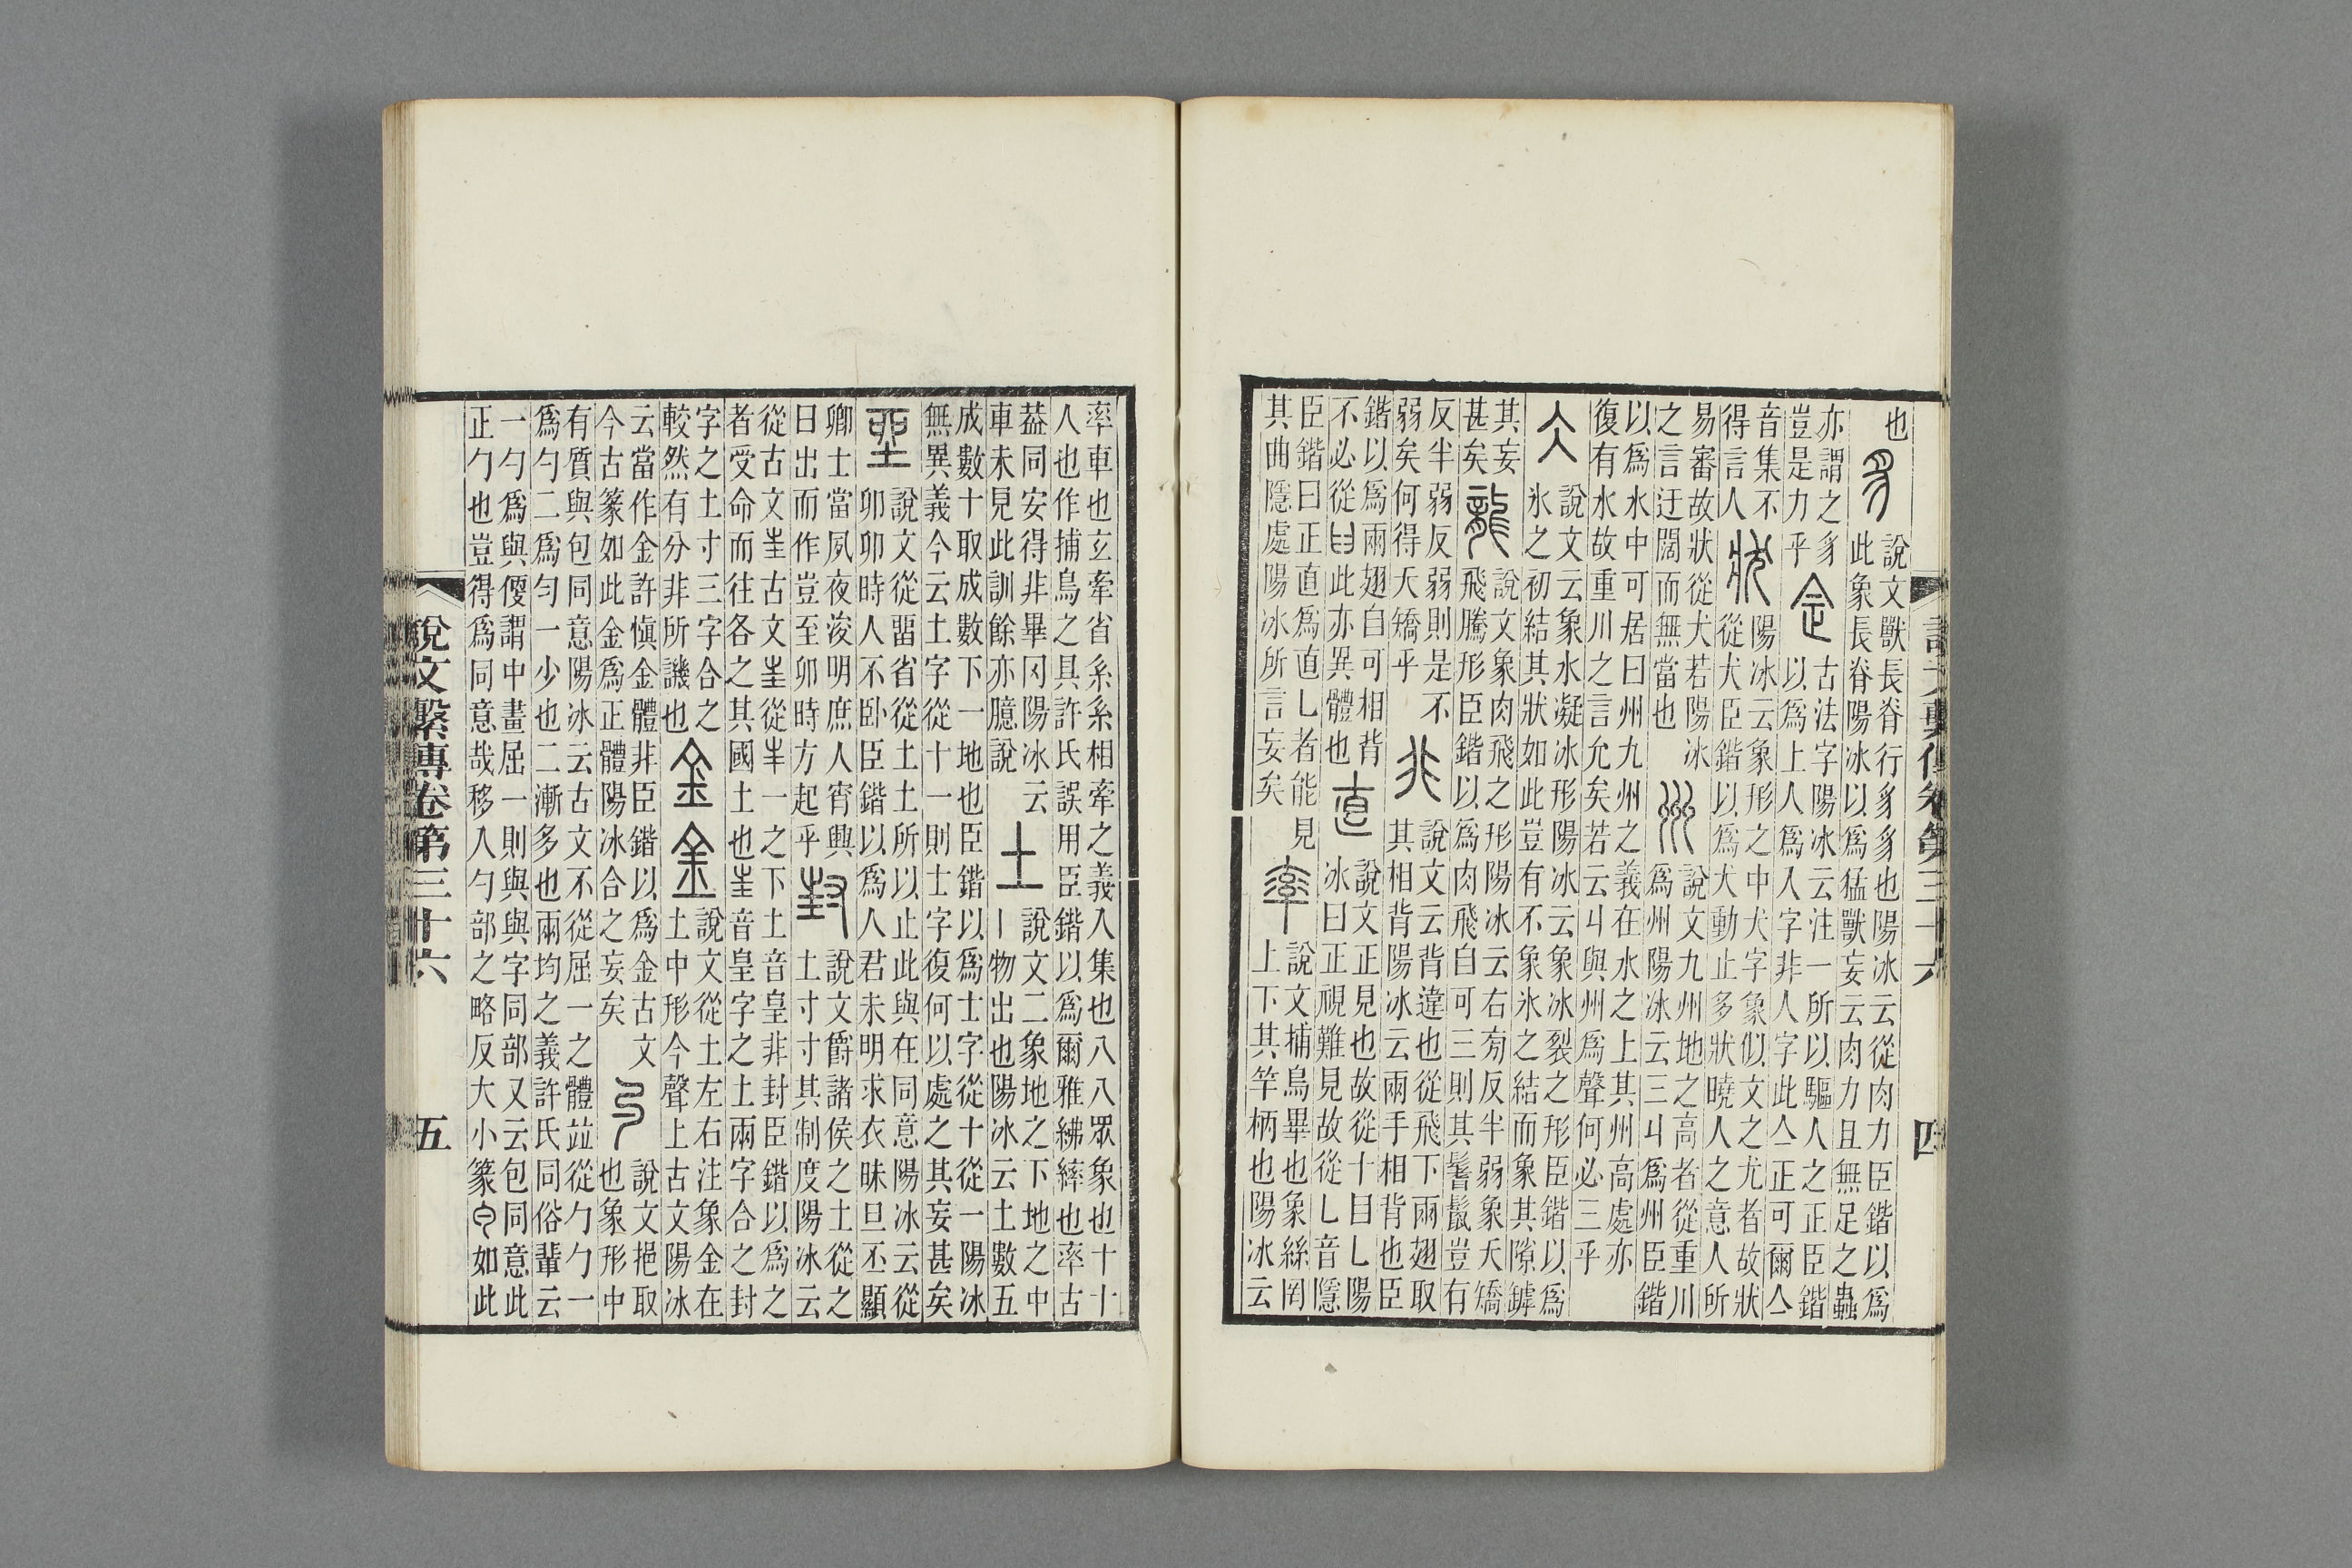 也 豸 說文獸長脊行豸豸也陽冰云從肉力臣鍇以爲
此象長脊陽冰以爲猛獸妄云肉力且無足之蟲
亦謂之豸
豈是力乎
佱 古法字陽冰云注一所以驅人之正臣鍇
以爲上人爲入字非人字此亼正可爾亼
音集不
得言人
狀 陽冰云象形之中犬字象似文之尤者故狀
從犬臣鍇以爲犬動止多狀曉人之意人所
易審故狀從犬若陽冰
之言迂闊而無當也
州 說文九州地之高者從重川
爲州陽冰云三丩爲州臣鍇
以爲水中可居曰州九州之義在水之上其州高處亦
復有水故重川之言允矣若云丩與州爲聲何必三乎
仌 說文云象水凝冰形陽冰云象冰裂之形臣鍇以爲
氷之初結其狀如此豈有不象氷之結而象其隙罅
其妄
甚矣
龍 說文象肉飛之形陽冰云右旁反半弱象夭矯
飛騰形臣鍇以爲肉飛自可三則其鬐鬣豈有
反半弱反弱則是不
弱矣何得夭矯乎
非 說文云背違也從飛下兩翅取
其相背陽冰云兩手相背也臣
鍇以爲兩翅自可相背
不必從𦥑此亦異體也
直 說文正見也故從十目乚陽
冰曰正視難見故從乚音隱
臣鍇曰正直爲直乚者能見
其曲隱處陽冰所言妄矣
率 說文捕鳥畢也象絲罔
上下其竿柄也陽冰云
說文繫傳卷第三十六 四
率車也玄牽省糸糸相牽之義人集也八八眾象也十十
人也作捕鳥之具許氏誤用臣鍇以爲爾雅紼繂也率古
葢同安得非畢冈陽冰云
車未見此訓餘亦臆說
土 說文二象地之下地之中
丨物出也陽冰云土數五
成數十取成數下一地也臣鍇以爲士字從十從一陽冰
無異義今云土字從十一則士字復何以處之其妄甚矣
𡋲 說文從畱省從土土所以止此與在同意陽冰云從
卯卯時人不臥臣鍇以爲人君未明求衣昧旦丕顯
卿士當夙夜浚明庶人宵興
日出而作豈至卯時方起乎
封 說文爵諸侯之土從之
土寸寸其制度陽冰云
從古文𡉚古文𡉚從丰一之下土音皇非封臣鍇以爲之
者受命而往各之其國土也𡉚音皇字之土兩字合之封
字之土寸三字合之
較然有分非所譏也
金 金 說文從土左右注象金在
土中形今聲上古文陽冰
云當作金許愼金體非臣鍇以爲金古文
今古篆如此金爲正體陽冰合之妄矣
勺 說文挹取
也象形中
有質與包同意陽冰云古文不從屈一之體竝從勹勹一
爲勺二爲勻一少也二漸多也兩均之義許氏同俗輩云
一勺爲與傻謂中畫屈一則與與字同部又云包同意此
正勹也豈得爲同意哉移入勺部之略反大小篆㔾如此
說文繫傳卷第三十六 五